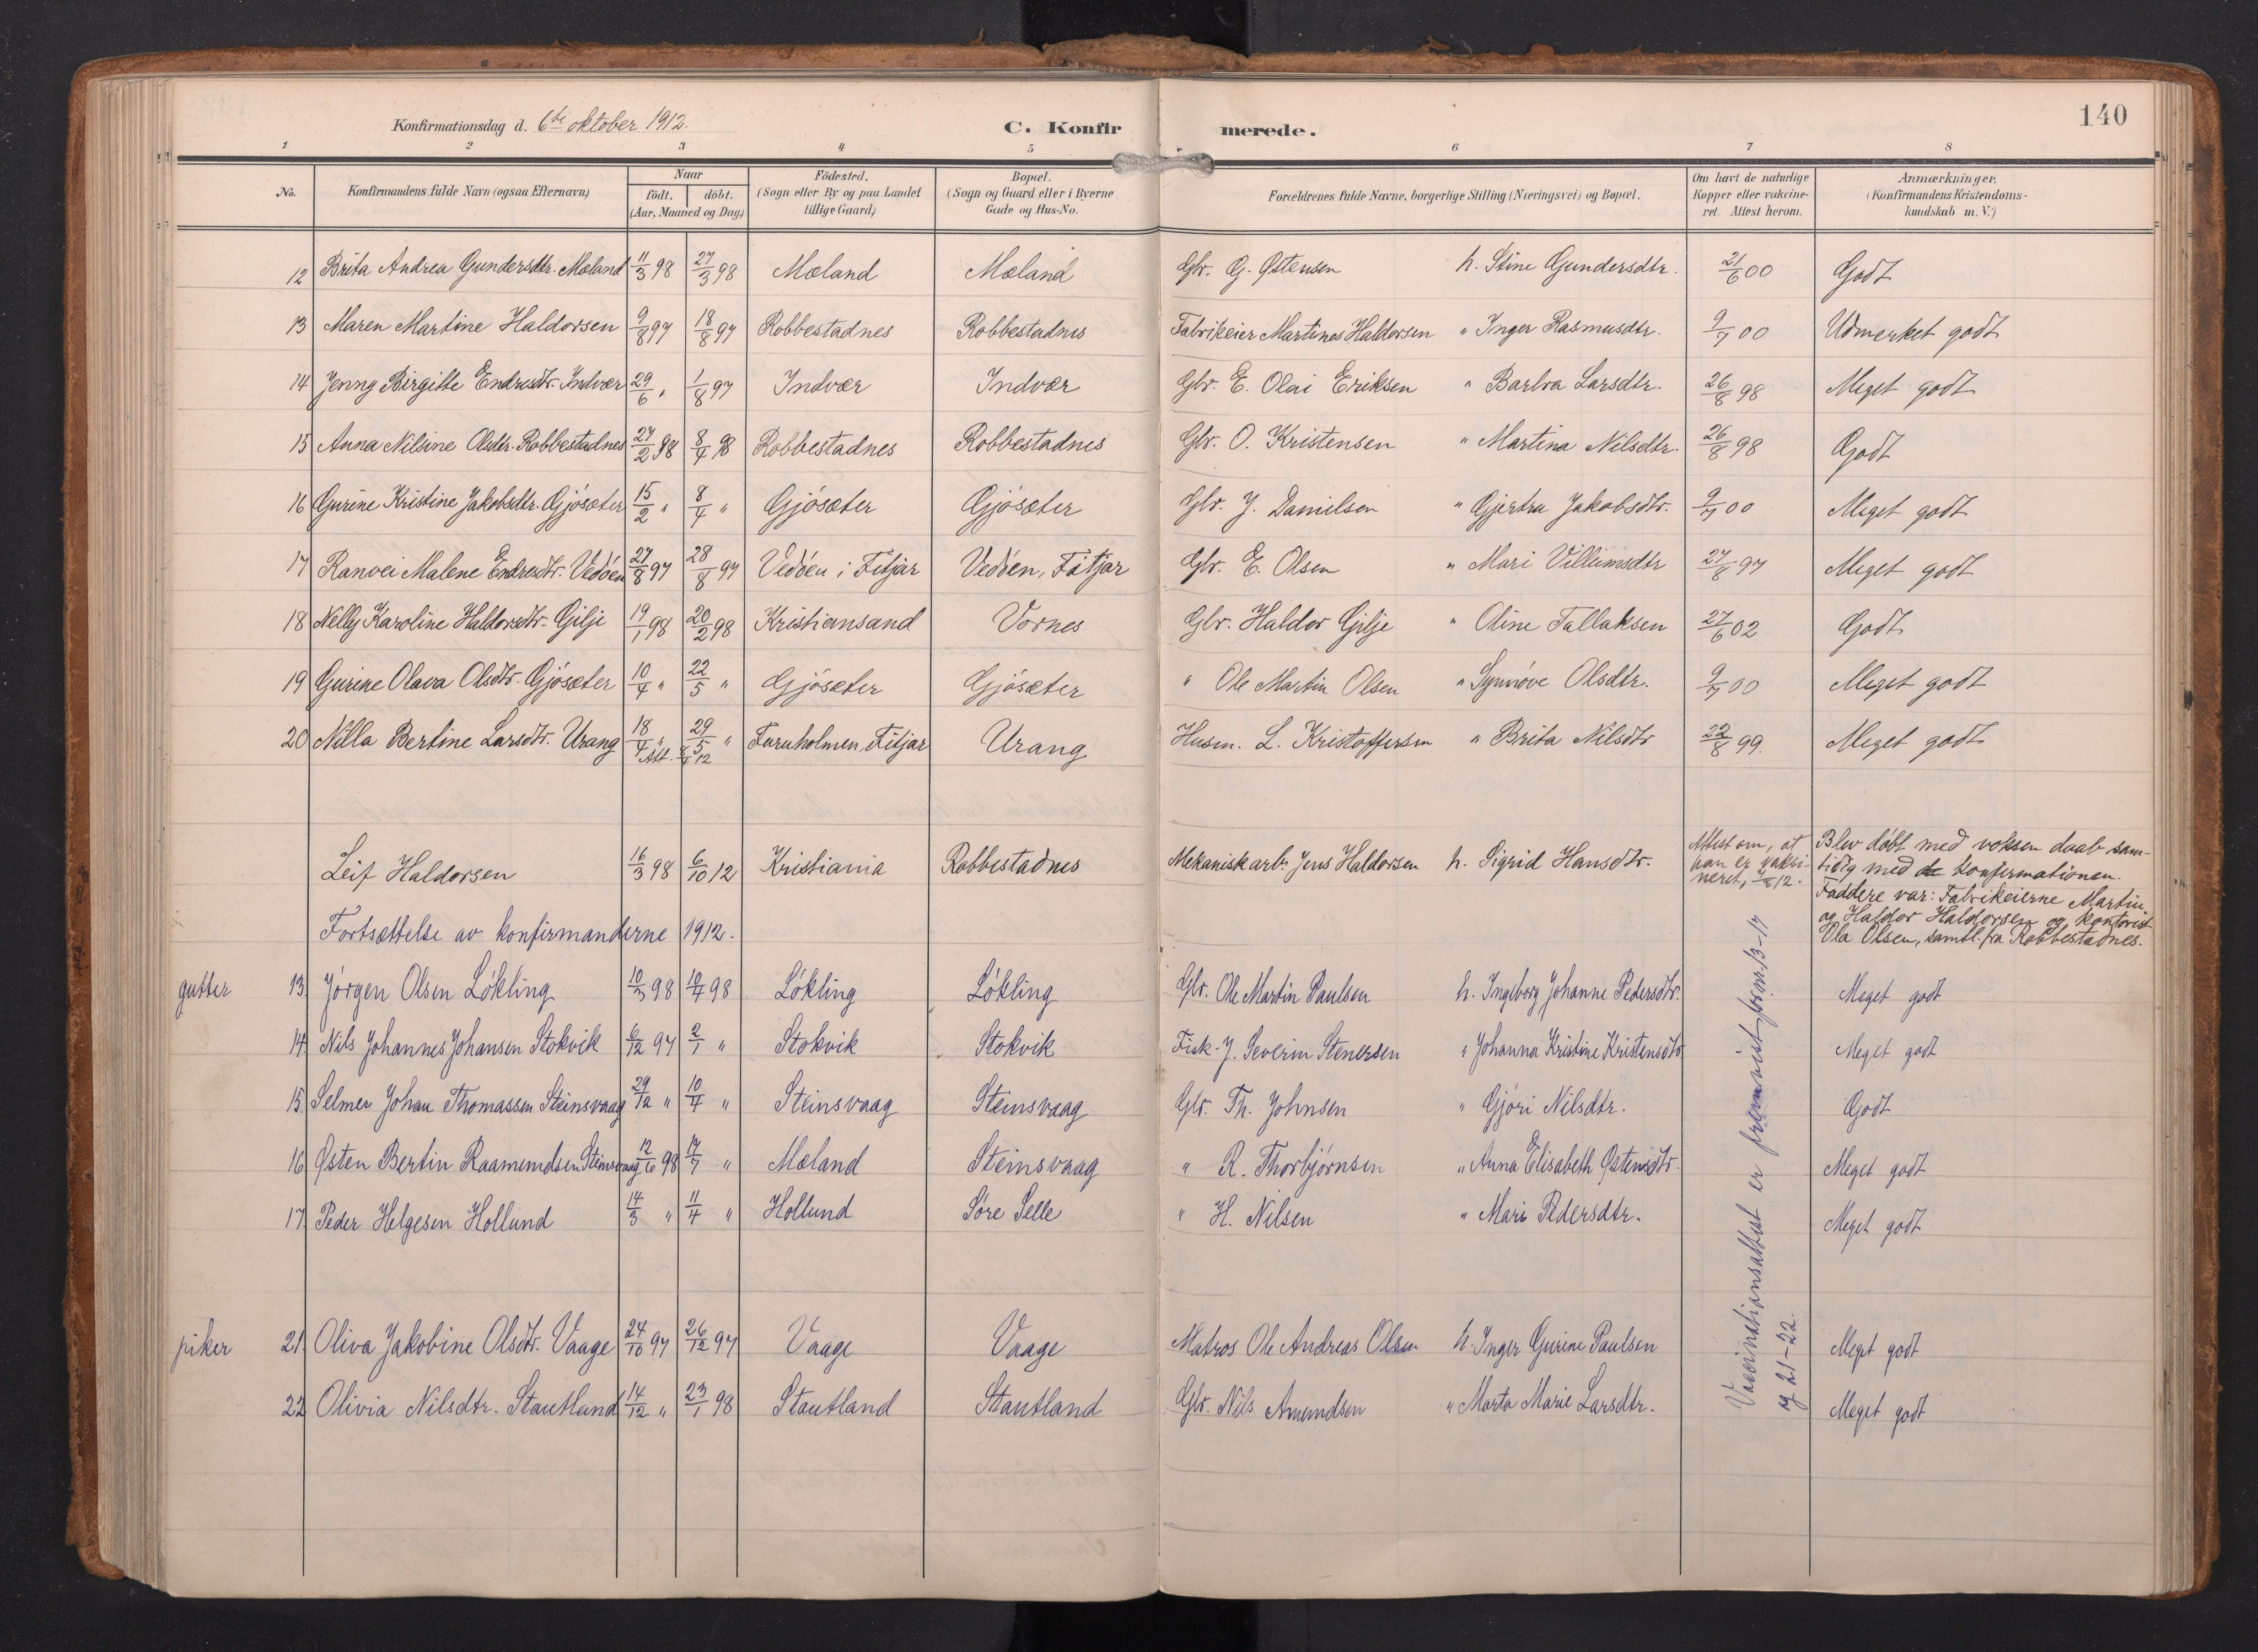 140
Konfirmationsdag d. 6te oktober 1912.
C. Konfir merede.
1 2 3 4 5 6 7 8
No.
Konfirmandens fulde Navn (ogsaa Efternavn)
Naar
födt. döbt.
(Aar, Maaned og Dag)
Födested.
(Sogn eller By og paa Landet
tillige Gaard)
Bopæl.
(Sogn og Gaard eller i Byerne
Gade og Hus-No.
Forældrenes fulde Navne, borgerlige Stilling (Næringsvei) og Bopæl.
Om havt de naturlige
Kopper eller vakcine-
ret. Attest herom.
Anmærkninger.
(Konfirmandens Kristendoms-
kundskab m. V.)
12 Brita Andrea Gundersdtr. Mæland 11/3 98 27/3 98 Mæland Mæland Gbr. G. Østensen h. Stine Gundersdtr. 21/6 00 Godt
13 Maren Martine Haldorsen 9/8 97 18/8 97 Robbestadnes Robbestadnes Fabrikeier Martines Haldorsen " Inger Rasmusdtr. 9/7 00 Udmerket godt
14 Jenny Birgitte Endresdtr. Indvær 29/6 " 1/8 97 Indvær Indvær Gbr. E. Olai Eriksen " Barbra Larsdtr. 26/8 98 Meget godt
15 Anna Nilsine Olsdtr. Robbestadnes 27/2 98 8/4 98 Robbestadnes Robbestadnes Gbr. O. Kristensen " Martina Nilsdtr. 26/8 98 Godt
16 Gurine Kristine Jakobsdtr. Gjøsæter 15/2 " 8/4 " Gjøsæter Gjøsæter Gbr. J. Danielsen " Gjertru Jakobsdtr. 9/7 00 Meget godt
17 Ranvei Malene Endresdtr. Vedøen 27/8 97 28/8 97 Vedøen i Fitjar Vedøen, Fitjar Gbr. E. Olsen " Mari Villumsdtr 27/8 97 Meget godt
18 Nelly Karoline Haldorsdtr. Gilje 19/1 98 20/2 98 Kristiansand Vornes Gbr. Haldor Gilje " Oline Tallaksen 27/6 02 Godt
19 Gurine Olava Olsdtr. Gjøsæter 10/4 " 22/5 " Gjøsæter Gjøsæter " Ole Martin Olsen " Synnøve Olsdtr. 9/7 00 Meget godt
20 Nilla Bertine Larsdtr. Urang 18/4 " 29/5 " Furuholmen, Fitjar Urang Husm. L. Kristoffersen " Brita Nilsdtr 22/8 99. Meget godt
Att. 8/4 12
Leif Haldorsen 16/3 98 6/10 12 Kristiania Robbestadnes Mekanisk arb. Jens Haldorsen h. Sigrid Hansdtr.
Attest om, at
han er vaksi-
neret, 12.
Blev døbt med voksen daab sam-
tidig med konfirmationen.
Faddere var: Fabrikeierne Martin
og Haldor Haldorsen og kontorist
Ola Olsen, samtl. fra Robbestadnes.
Fortsættelse av konfirmanderne 1912.
gutter 13. Jørgen Olsen Løkling 10/3 98 10/4 98 Løkling Løkling Gbr. Ole Martin Paulsen h. Ingeborg Johanne Pedersdtr. Meget godt
14. Nils Johannes Johansen Stokvik 6/12 97 2/1 " Stokvik Stokvik Fisk. J. Severin Stenersen " Johanna Kristine Kristensdtr Meget godt
15. Selmer Johan Thomassen Steinsvaag 29/12 " 10/4 " Steinsvaag Steinsvaag Gbr. Th. Johnsen " Gjøri Nilsdtr. Godt
16 Østen Bertin Raamundsen Steinsvaag 12/6 98 17/7 " Mæland Steinsvaag " R. Thorbjørnsen " Anna Elisabeth Østensdtr. Meget godt
17 Peder Helgesen Hollund 14/3 " 11/4 " Hollund Søre Selle " H. Nilsen " Mari Pedersdtr. Meget godt
piker 21. Oliva Jakobine Olsdtr. Vaage 24/10 97 26/12 97 Vaage Vaage Matros Ole Andreas Olsen h. Inger Gurine Paulsen Meget godt
22 Olivia Nilsdtr. Stautland 14/12 " 23/1 98 Stautland Stautland Gbr. Nils Amundsen " Marta Marie Larsdtr. Meget godt
Vaccinationsattest er fremvist for nr. 13-17
og 21-22.